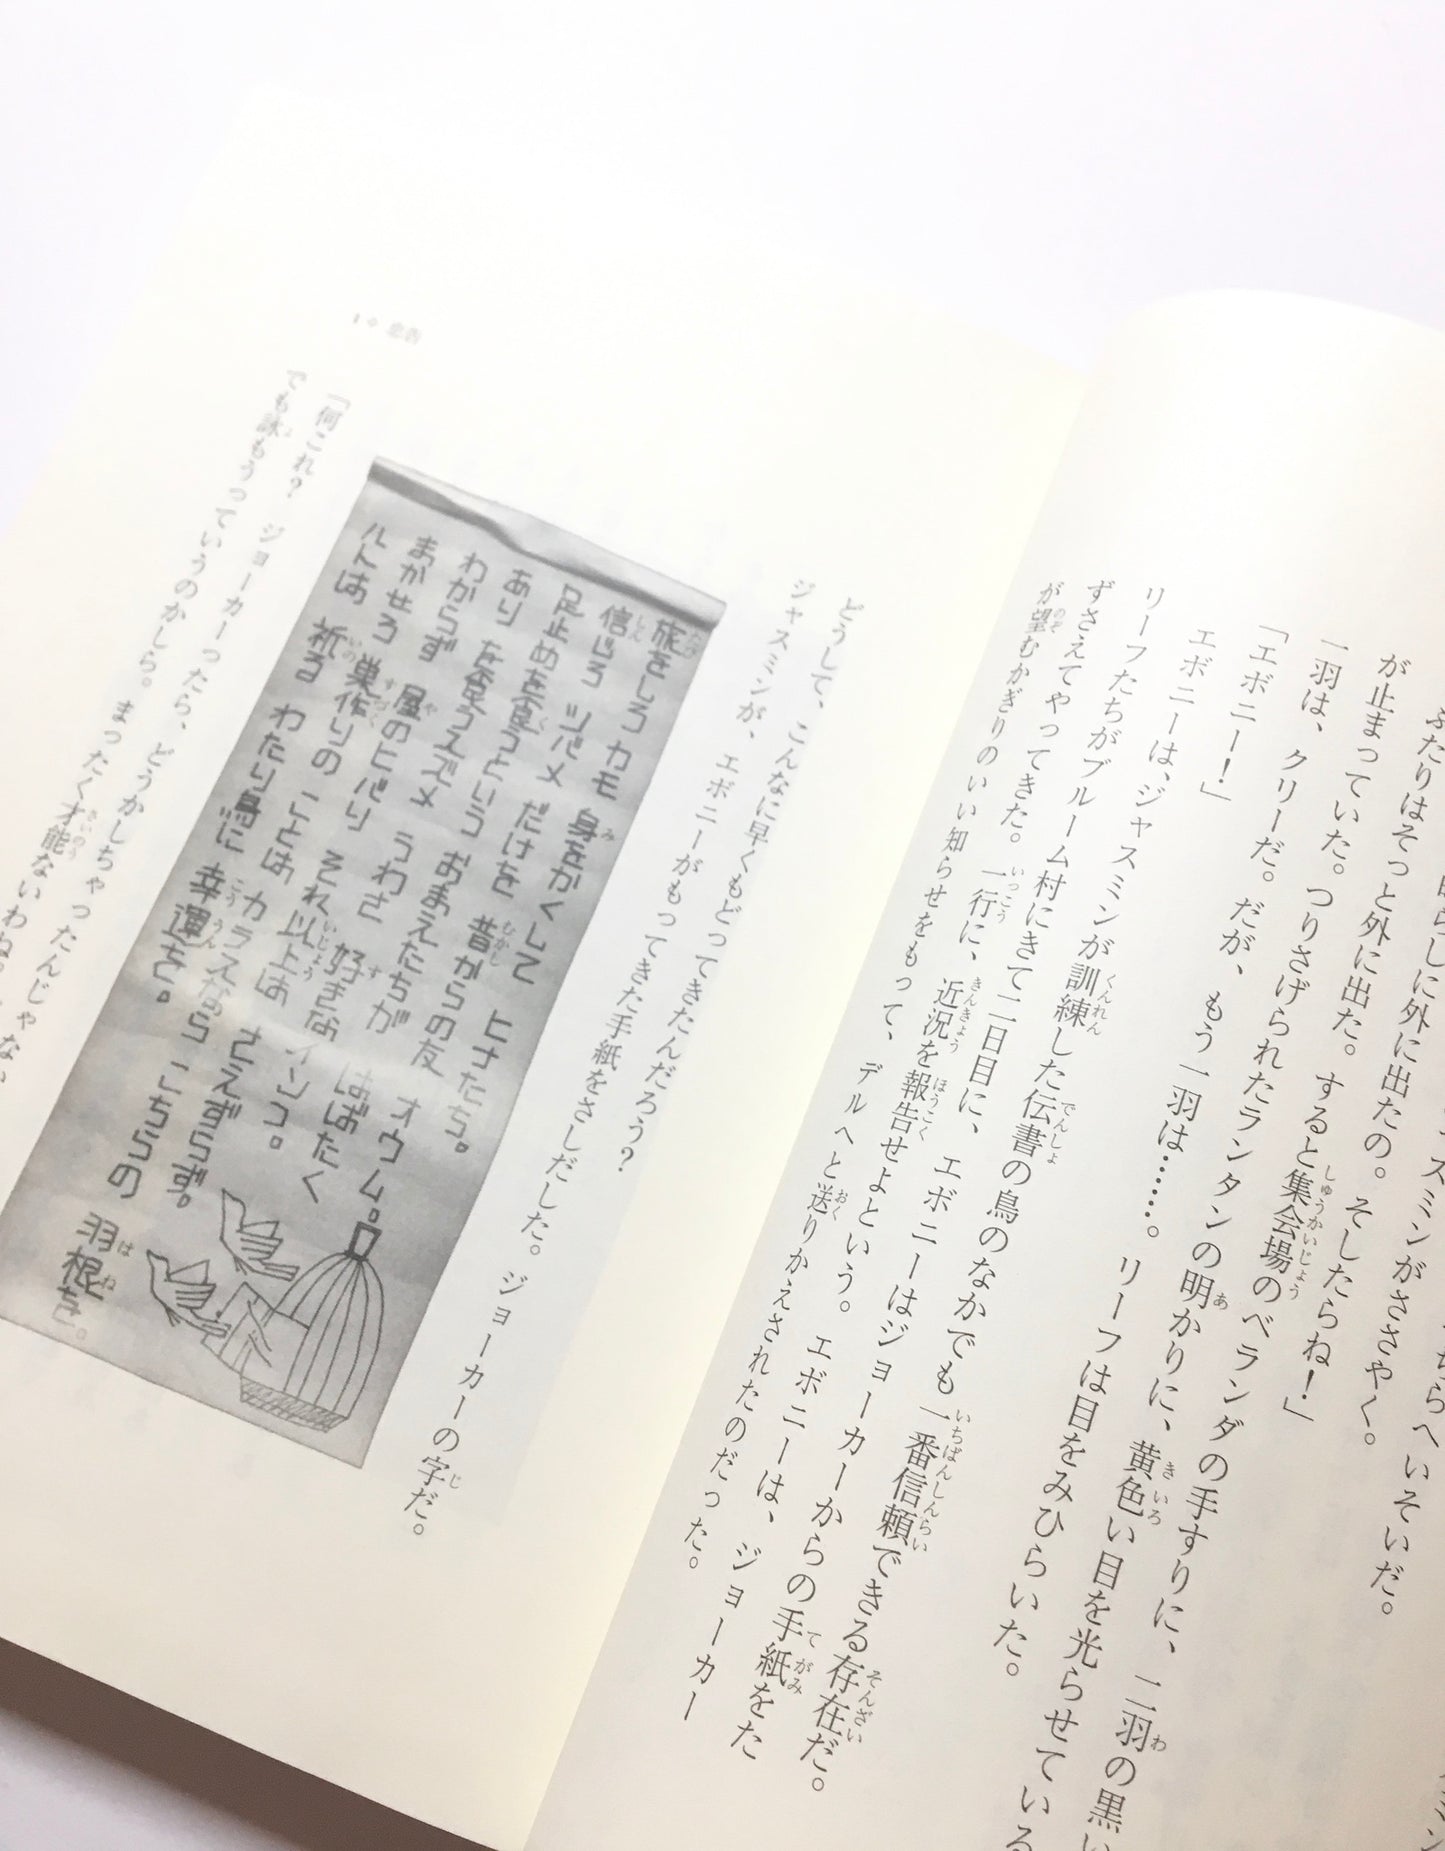 ふたりはそっと外に出たの。そしたらね！」
が止まっていた。
一羽は、クリーだ。だが、もう一羽は……。リーフは目をみひらいた。
「エボニー！」
エボニーは、ジャスミンが訓練した伝書の鳥のなかでも一番信頼できる存在だ。
リーフたちがブルーム村にきて二日目に、エボニーはジョーカーからの手紙をた
ずさえてやってきた。一行に、近況を報告せよという。エボニーは、ジョーカー
が望むかぎりのいい知らせをもって、デルへと送りかえされたのだった。
1 忠告
どうして、こんなに早くもどってきたんだろう？
ジャスミンが、エボニーがもってきた手紙をさしだした。ジョーカーの字だ。
旅をしろ カモ 身をかくして ヒナたち。
信じろ ツバメ だけを 昔からの友 オウム。
足止めを食うという おまえたちが
あり を食うスズメ うわさ 好きなインコ。
わからず 屋のヒバリ それ以上は さえずらず。
まかせろ 巣作りの ことは カラスなら こちらの
ルトは 祈る わたり鳥に 幸運を。
羽根を。
「何これ？ ジョーカーったら、どうかしちゃったんじゃない
でも詠もうっていうのかしら。まったく才能ないわね。